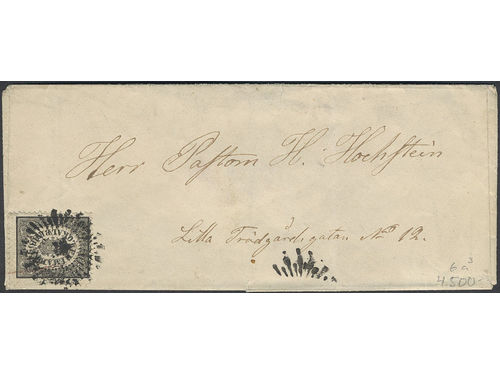 Herr Pastorn H. Hochstein
Lilla Trädgårdsgatan No 12.
6a3
4.500-